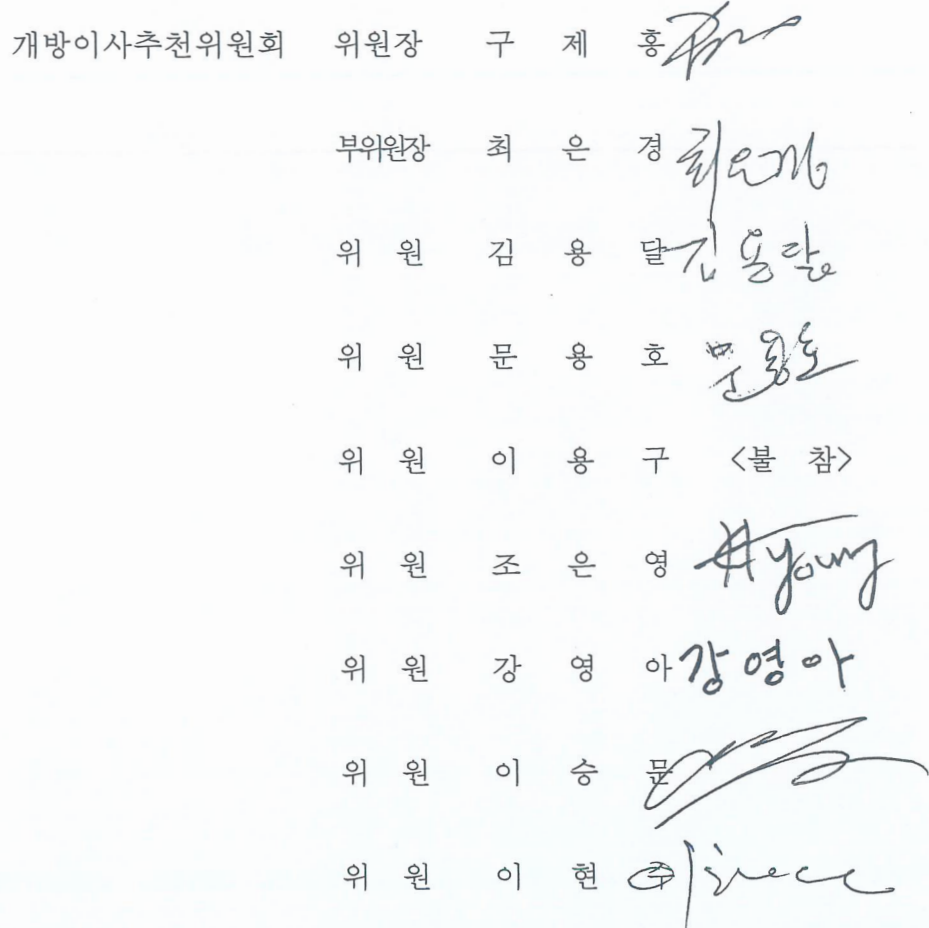 개방이사추천위원회 위원장 구 제 홍
부위원장 최 은 경 최은경
위 원 김 용 달 김용달
위 원 문 용 호 문용호
위 원 이 용 구 <불 참>
위 원 조 은 영 young
위 원 강 영 아 강영아
위 원 이 승 문
위 원 이 현 주